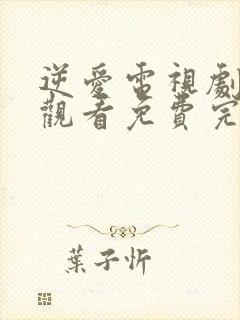 逆愛電視劇
觀看免費完
葉子忻